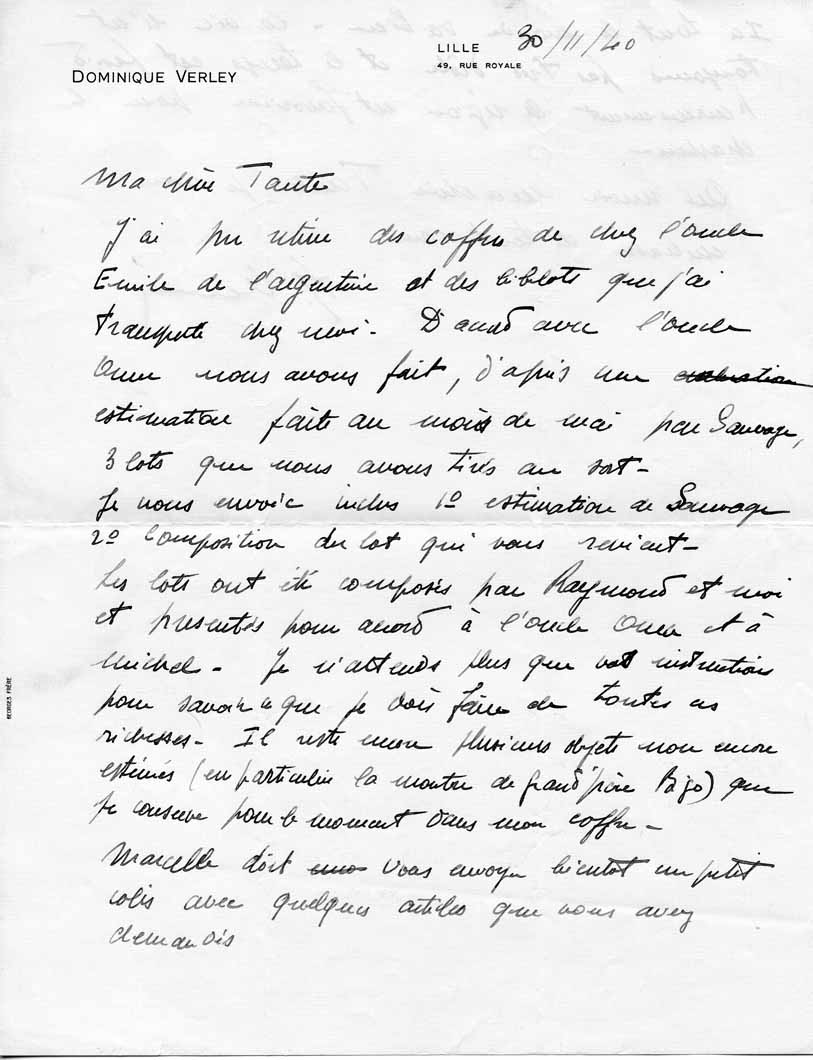 LILLE 30/11/40
49, RUE ROYALE
DOMINIQUE VERLEY
Ma chère Tante
J'ai pu retirer des coffres de chez l'oncle
Emile de l'argenterie et des bibelots que j'ai
transporté chez moi. D'accord avec l'oncle
Omer nous avons fait, d'après une evaluation
estimation faite au mois de mai par Sauvage,
3 lots que nous avons tirés au sort -
Je vous envoie inclus 1º estimation de Sauvage
2º Composition du lot qui vous revient -
Les lots ont été composés par Raymond et moi
et presentés pour accord à l'oncle Omer et à
Michel - Je n'attends plus que vos instructions
pour savoir ce que je dois faire de toutes ces
richesses - Il reste encore plusieurs objets non encore
estimés (en particulier la montre de grand'père Bigo) que
je conserve pour le moment dans mon coffre -
Marcelle doit vous envoyer bientot un petit
colis avec quelques articles que vous avez
demandés
GEORGES FRÈRE